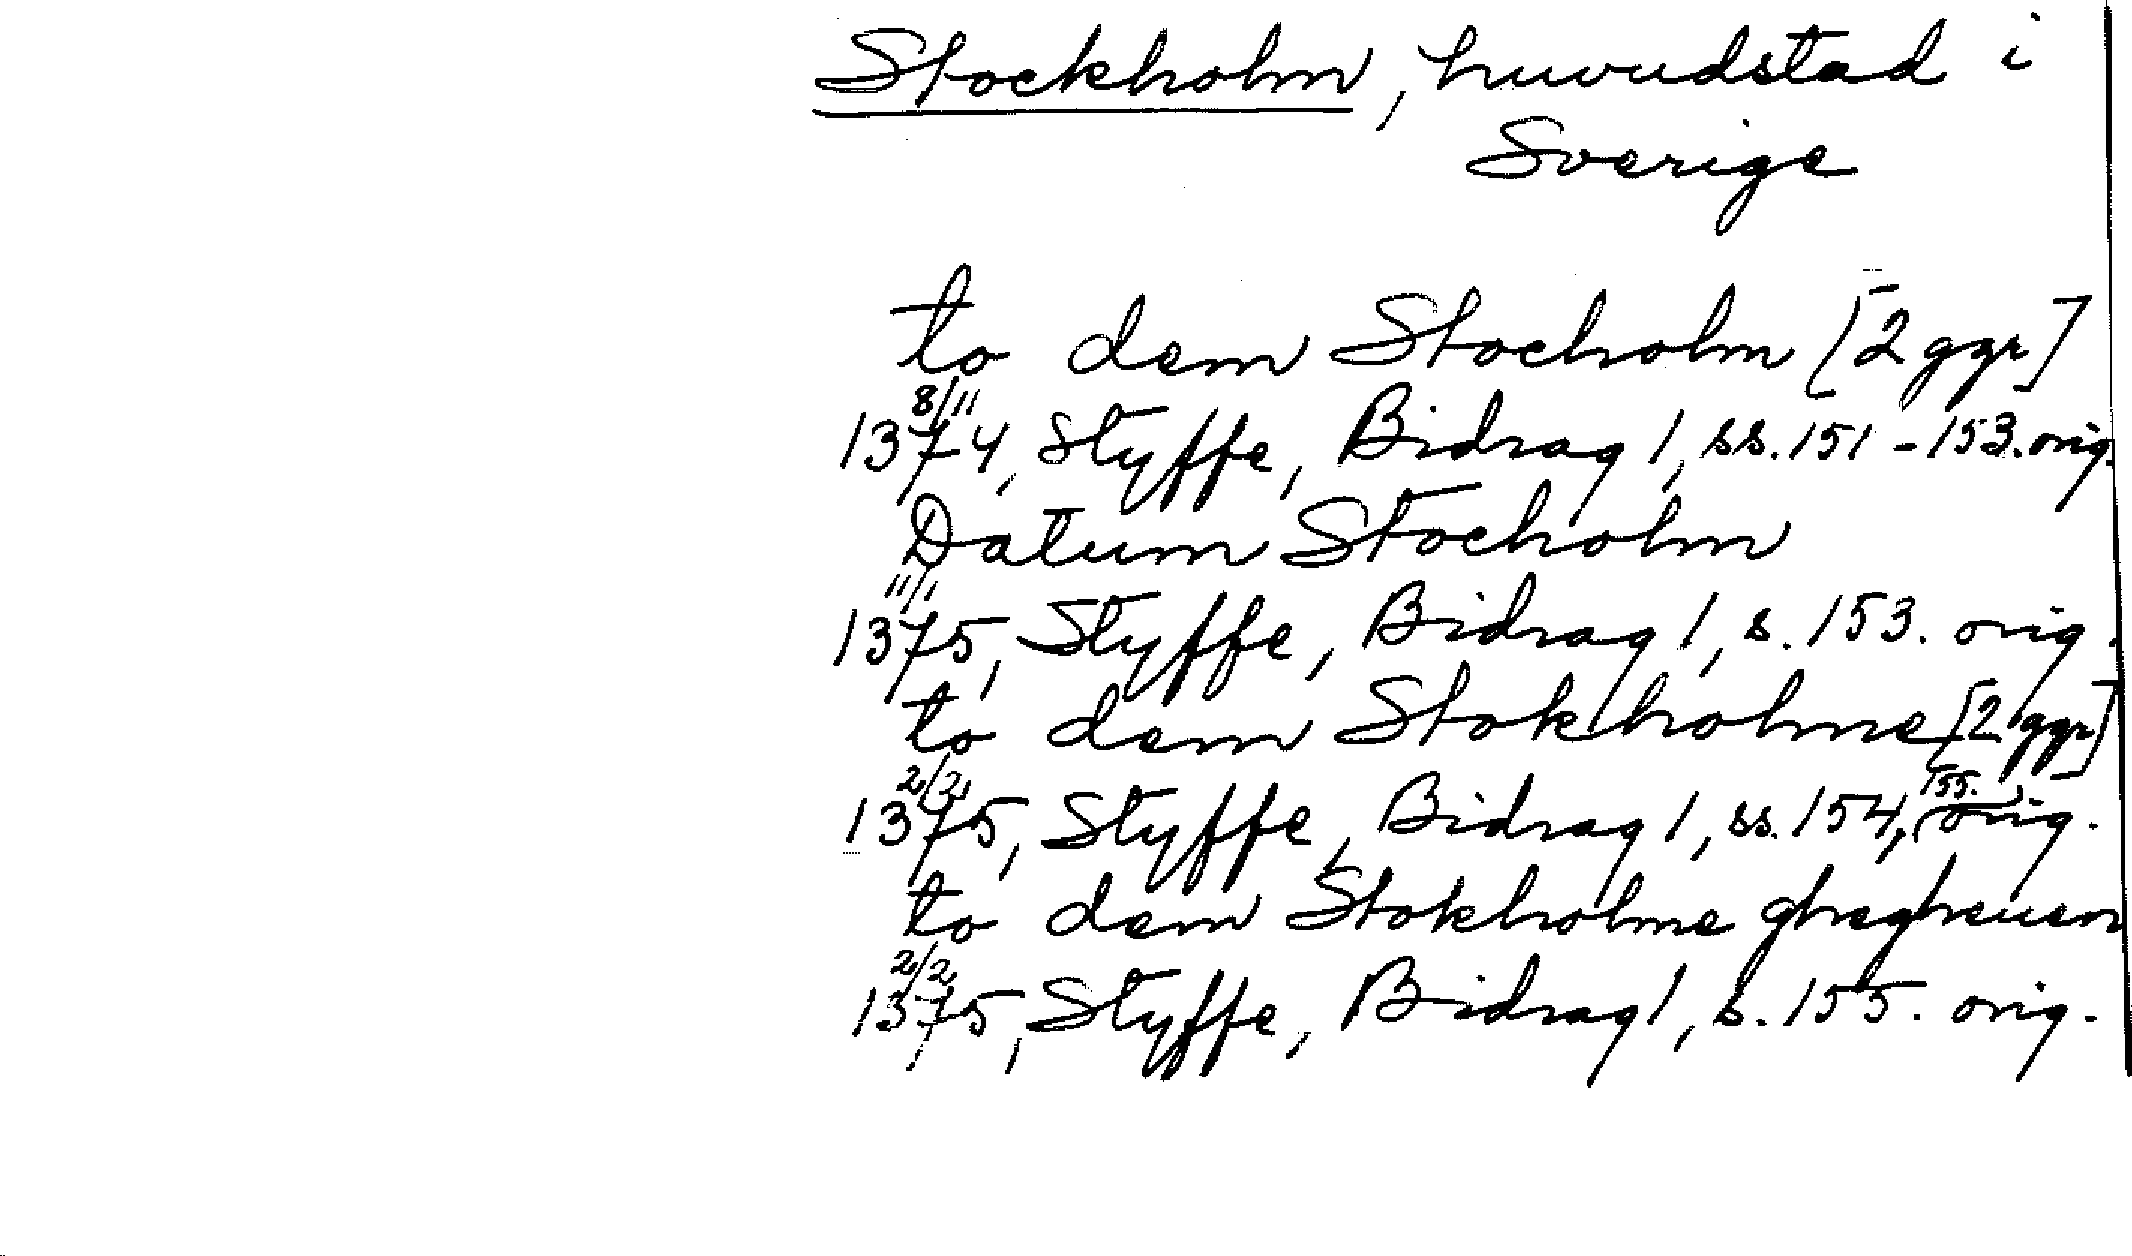 Stockholm, huvudstad i
Sverige
to dem Stocholm [2 ggr]
8/11
1374, Styffe, Bidrag 1, ss. 151-153. orig.
Datum Stocholm
11/1
1375, Styffe, Bidrag 1, s. 153. orig.
to dem Stokholme [2 ggr]
2/2 155.
1375, Styffe, Bidrag 1, ss. 154, orig.
to dem Stokholme ghegheuen
2/2
1375, Styffe, Bidrag 1, s. 155. orig.